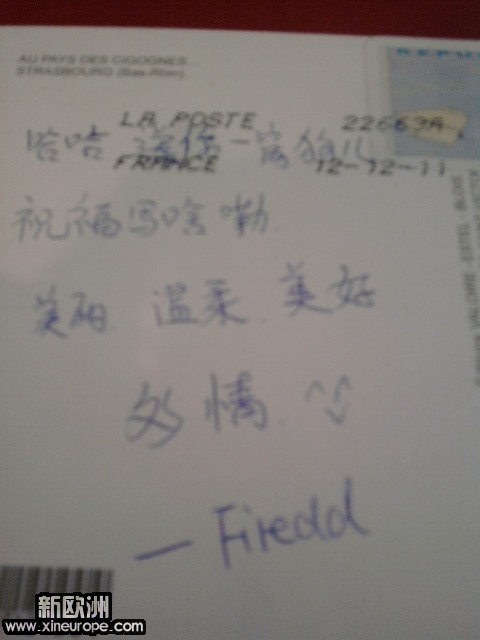 AU PAYS DES CIGOGNES...
STRASBOURG (Bas-Rhin)
LA POSTE 22663A
哈哈 一窝狗儿
FRANCE 12-12-11
祝福写啥嘞
美丽. 温柔. 美好
多情. ^_^
— Firedd
新欧洲
www.xineurope.com